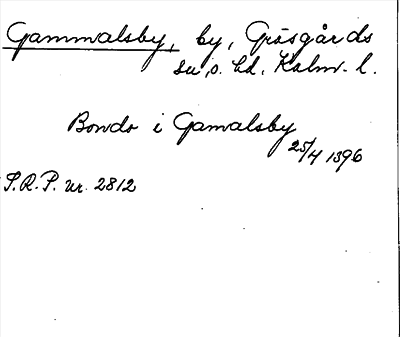 Gammalsby, by, Gräsgårds
su s. hd. Kalm. l.
Bondo i Gamalsby
25/4 1396
S.R.P. nr. 2812